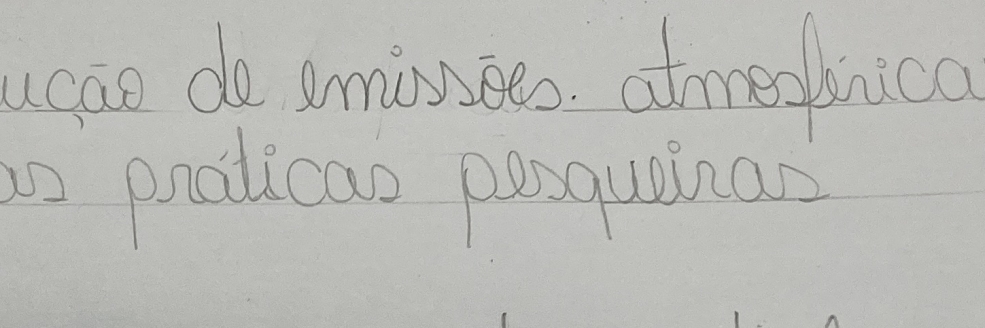 ução de emissões. atmosférica
as práticas pesqueiras